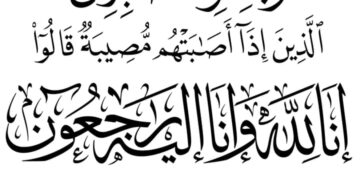 ٱلَّذِينَ إِذَآ أَصَـٰبَتْهُم مُّصِيبَةٌ قَالُوٓا۟
إنا لله وإنا إليه راجعون